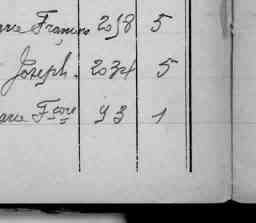 Marie François 2018 5
Joseph. 2034 5
Marie Fcoise 93 1